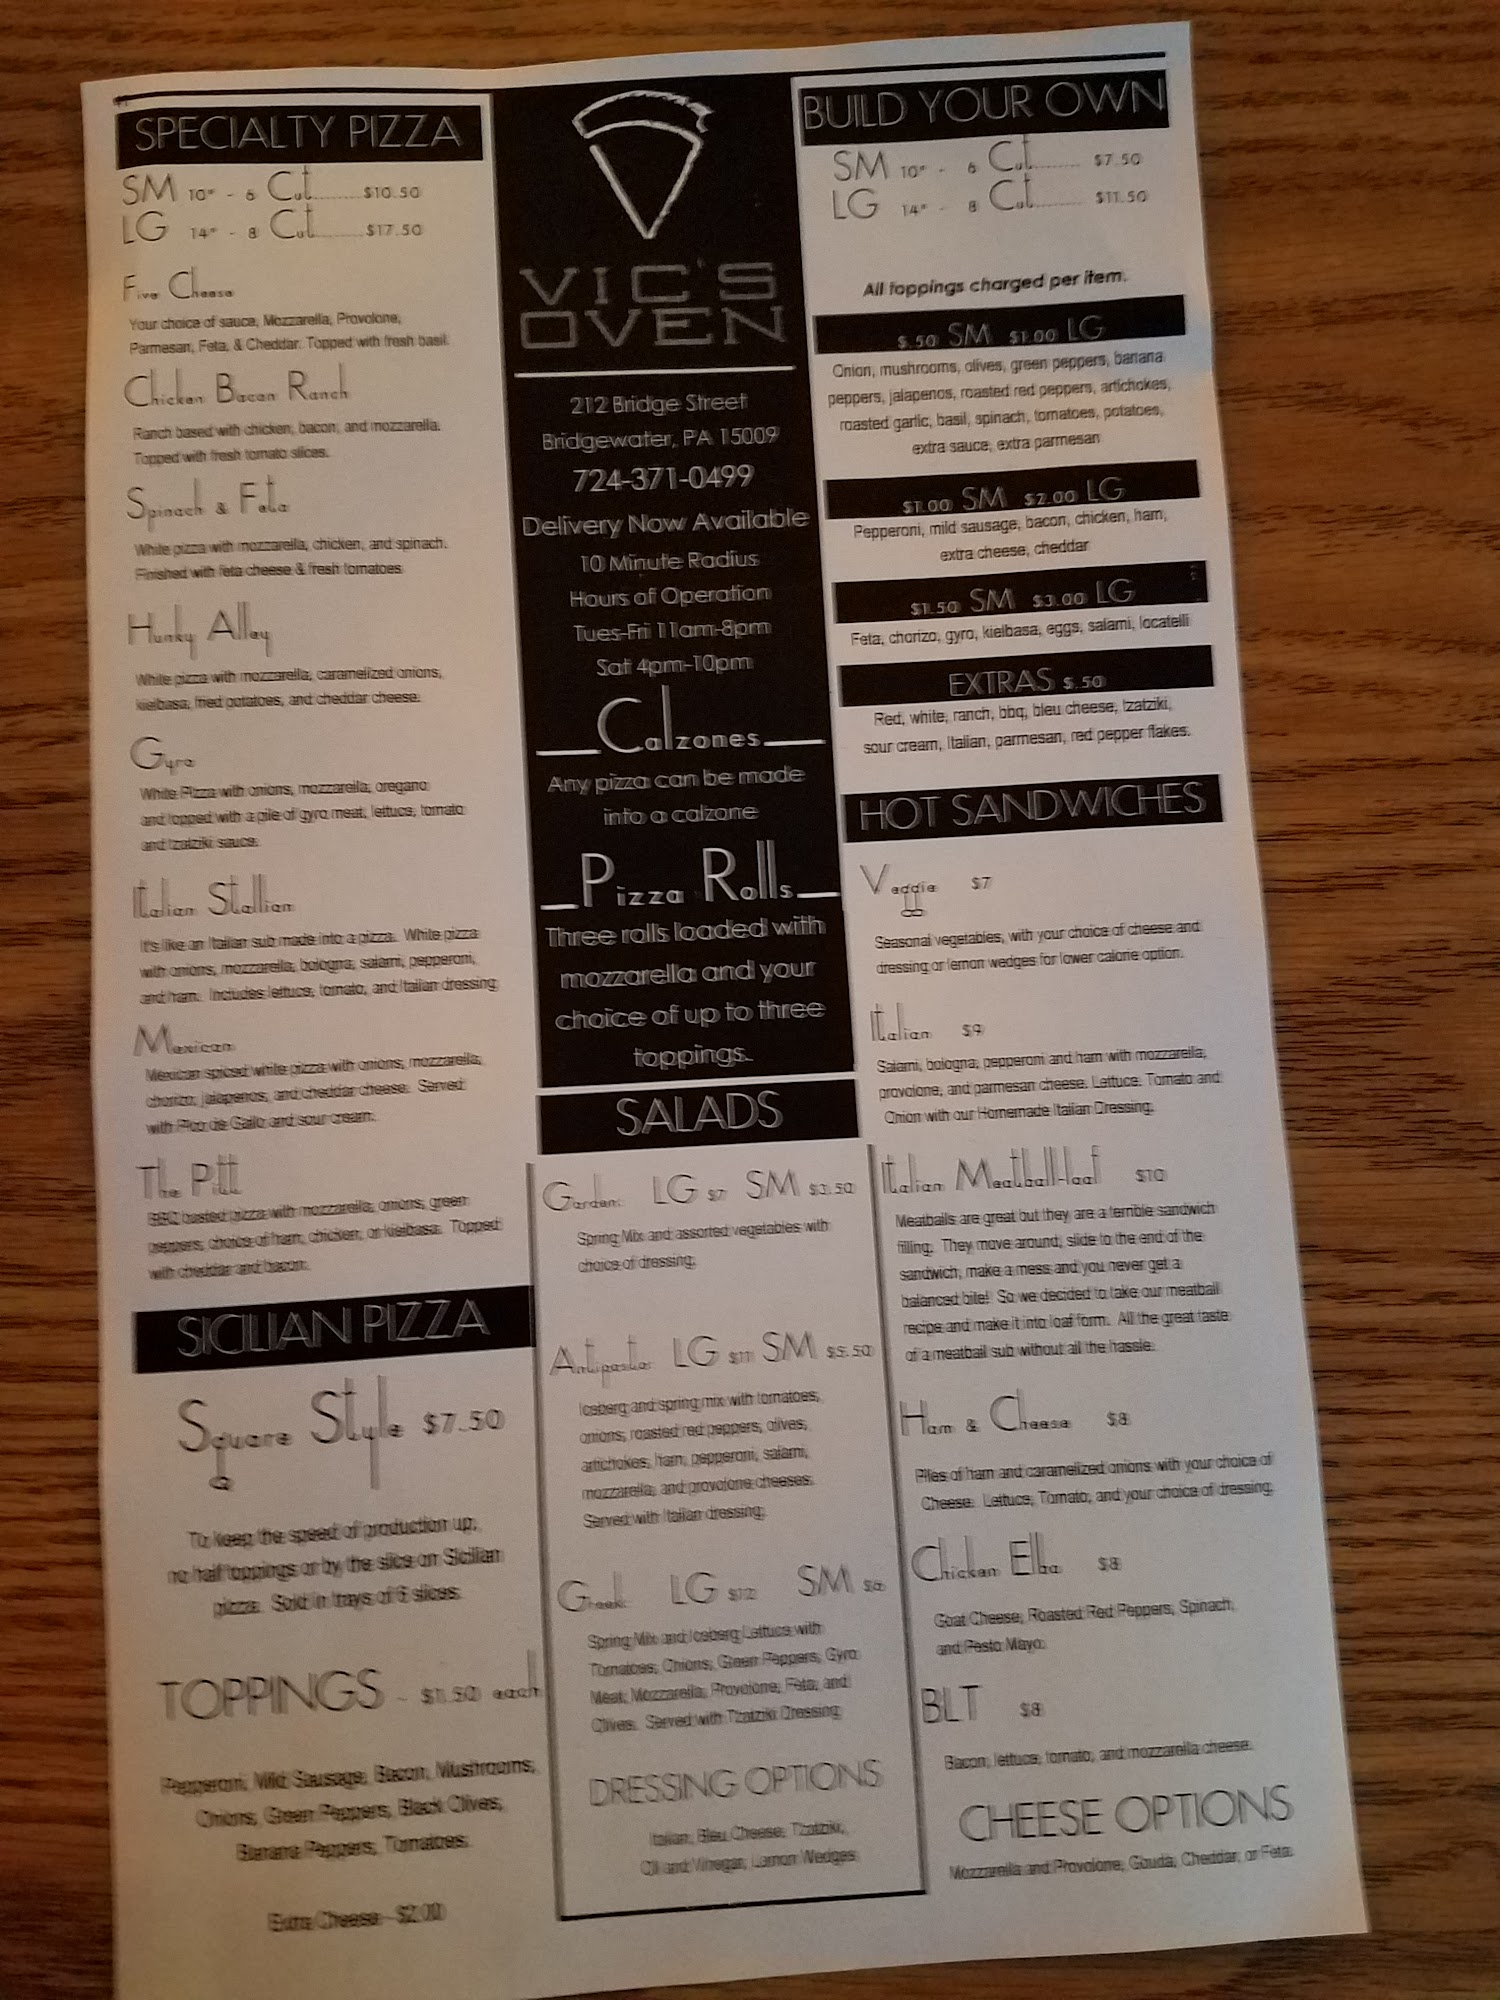 SPECIALTY PIZZA
SM 10" - 6 Cut.........$10.50
LG 14" - 8 Cut.........$17.50
Five Cheese
Your choice of sauce, Mozzarella, Provolone,
Parmesan, Feta, & Cheddar. Topped with fresh basil.
Chicken Bacon Ranch
Ranch based with chicken, bacon, and mozzarella.
Topped with fresh tomato slices.
Spinach & Feta
White pizza with mozzarella, chicken, and spinach.
Finished with feta cheese & fresh tomatoes.
Hunky Alley
White pizza with mozzarella, caramelized onions,
kielbasa, fried potatoes, and cheddar cheese.
Gyro
White Pizza with onions, mozzarella, oregano
and topped with a pile of gyro meat, lettuce, tomato
and tzatziki sauce.
Italian Stallion
It's like an Italian sub made into a pizza. White pizza
with onions, mozzarella, bologna, salami, pepperoni,
and ham. Includes lettuce, tomato, and Italian dressing.
Mexican
Mexican spiced white pizza with onions, mozzarella,
chorizo, jalapenos, and cheddar cheese. Served
with Pico de Gallo and sour cream.
The Pitt
BBQ basted pizza with mozzarella, onions, green
peppers, choice of ham, chicken, or kielbasa. Topped
with cheddar and bacon.
SICILIAN PIZZA
Square Style $7.50
To keep the speed of production up,
no half toppings or by the slice on Sicilian
pizza. Sold in trays of 6 slices.
TOPPINGS - $1.50 each
Pepperoni, Mild Sausage, Bacon, Mushrooms,
Onions, Green Peppers, Black Olives,
Banana Peppers, Tomatoes.
Extra Cheese - $2.00
VIC'S
OVEN
212 Bridge Street
Bridgewater, PA 15009
724-371-0499
Delivery Now Available
10 Minute Radius
Hours of Operation
Tues-Fri 11am-8pm
Sat 4pm-10pm
Calzones
Any pizza can be made
into a calzone
Pizza Rolls
Three rolls loaded with
mozzarella and your
choice of up to three
toppings.
SALADS
Garden: LG $7 SM $3.50
Spring Mix and assorted vegetables with
choice of dressing.
Antipasto: LG $11 SM $5.50
Iceberg and spring mix with tomatoes,
onions, roasted red peppers, olives,
artichokes, ham, pepperoni, salami,
mozzarella, and provolone cheeses.
Served with Italian dressing.
Greek: LG $12 SM $6
Spring Mix and Iceberg Lettuce with
Tomatoes, Onions, Green Peppers, Gyro
Meat, Mozzarella, Provolone, Feta, and
Olives. Served with Tzatziki Dressing
DRESSING OPTIONS
Italian, Bleu Cheese, Tzatziki,
Oil and Vinegar, Lemon Wedges
BUILD YOUR OWN
SM 10" - 6 Cut......... $7.50
LG 14" - 8 Cut......... $11.50
All toppings charged per item.
$.50 SM $1.00 LG
Onion, mushrooms, olives, green peppers, banana
peppers, jalapenos, roasted red peppers, artichokes,
roasted garlic, basil, spinach, tomatoes, potatoes,
extra sauce, extra parmesan
$1.00 SM $2.00 LG
Pepperoni, mild sausage, bacon, chicken, ham,
extra cheese, cheddar
$1.50 SM $3.00 LG
Feta, chorizo, gyro, kielbasa, eggs, salami, locatelli
EXTRAS $.50
Red, white, ranch, bbq, bleu cheese, tzatziki,
sour cream, Italian, parmesan, red pepper flakes.
HOT SANDWICHES
Veggie $7
Seasonal vegetables, with your choice of cheese and
dressing or lemon wedges for lower calorie option.
Italian $9
Salami, bologna, pepperoni and ham with mozzarella,
provolone, and parmesan cheese. Lettuce, Tomato and
Onion with our Homemade Italian Dressing.
Italian Meatball-loaf $10
Meatballs are great but they are a terrible sandwich
filling. They move around, slide to the end of the
sandwich, make a mess and you never get a
balanced bite! So we decided to take our meatball
recipe and make it into loaf form. All the great taste
of a meatball sub without all the hassle.
Ham & Cheese $8
Piles of ham and caramelized onions with your choice of
Cheese. Lettuce, Tomato, and your choice of dressing.
Chicken Elba $8
Goat Cheese, Roasted Red Peppers, Spinach,
and Pesto Mayo.
BLT $8
Bacon, lettuce, tomato, and mozzarella cheese.
CHEESE OPTIONS
Mozzarella and Provolone, Gouda, Cheddar, or Feta.